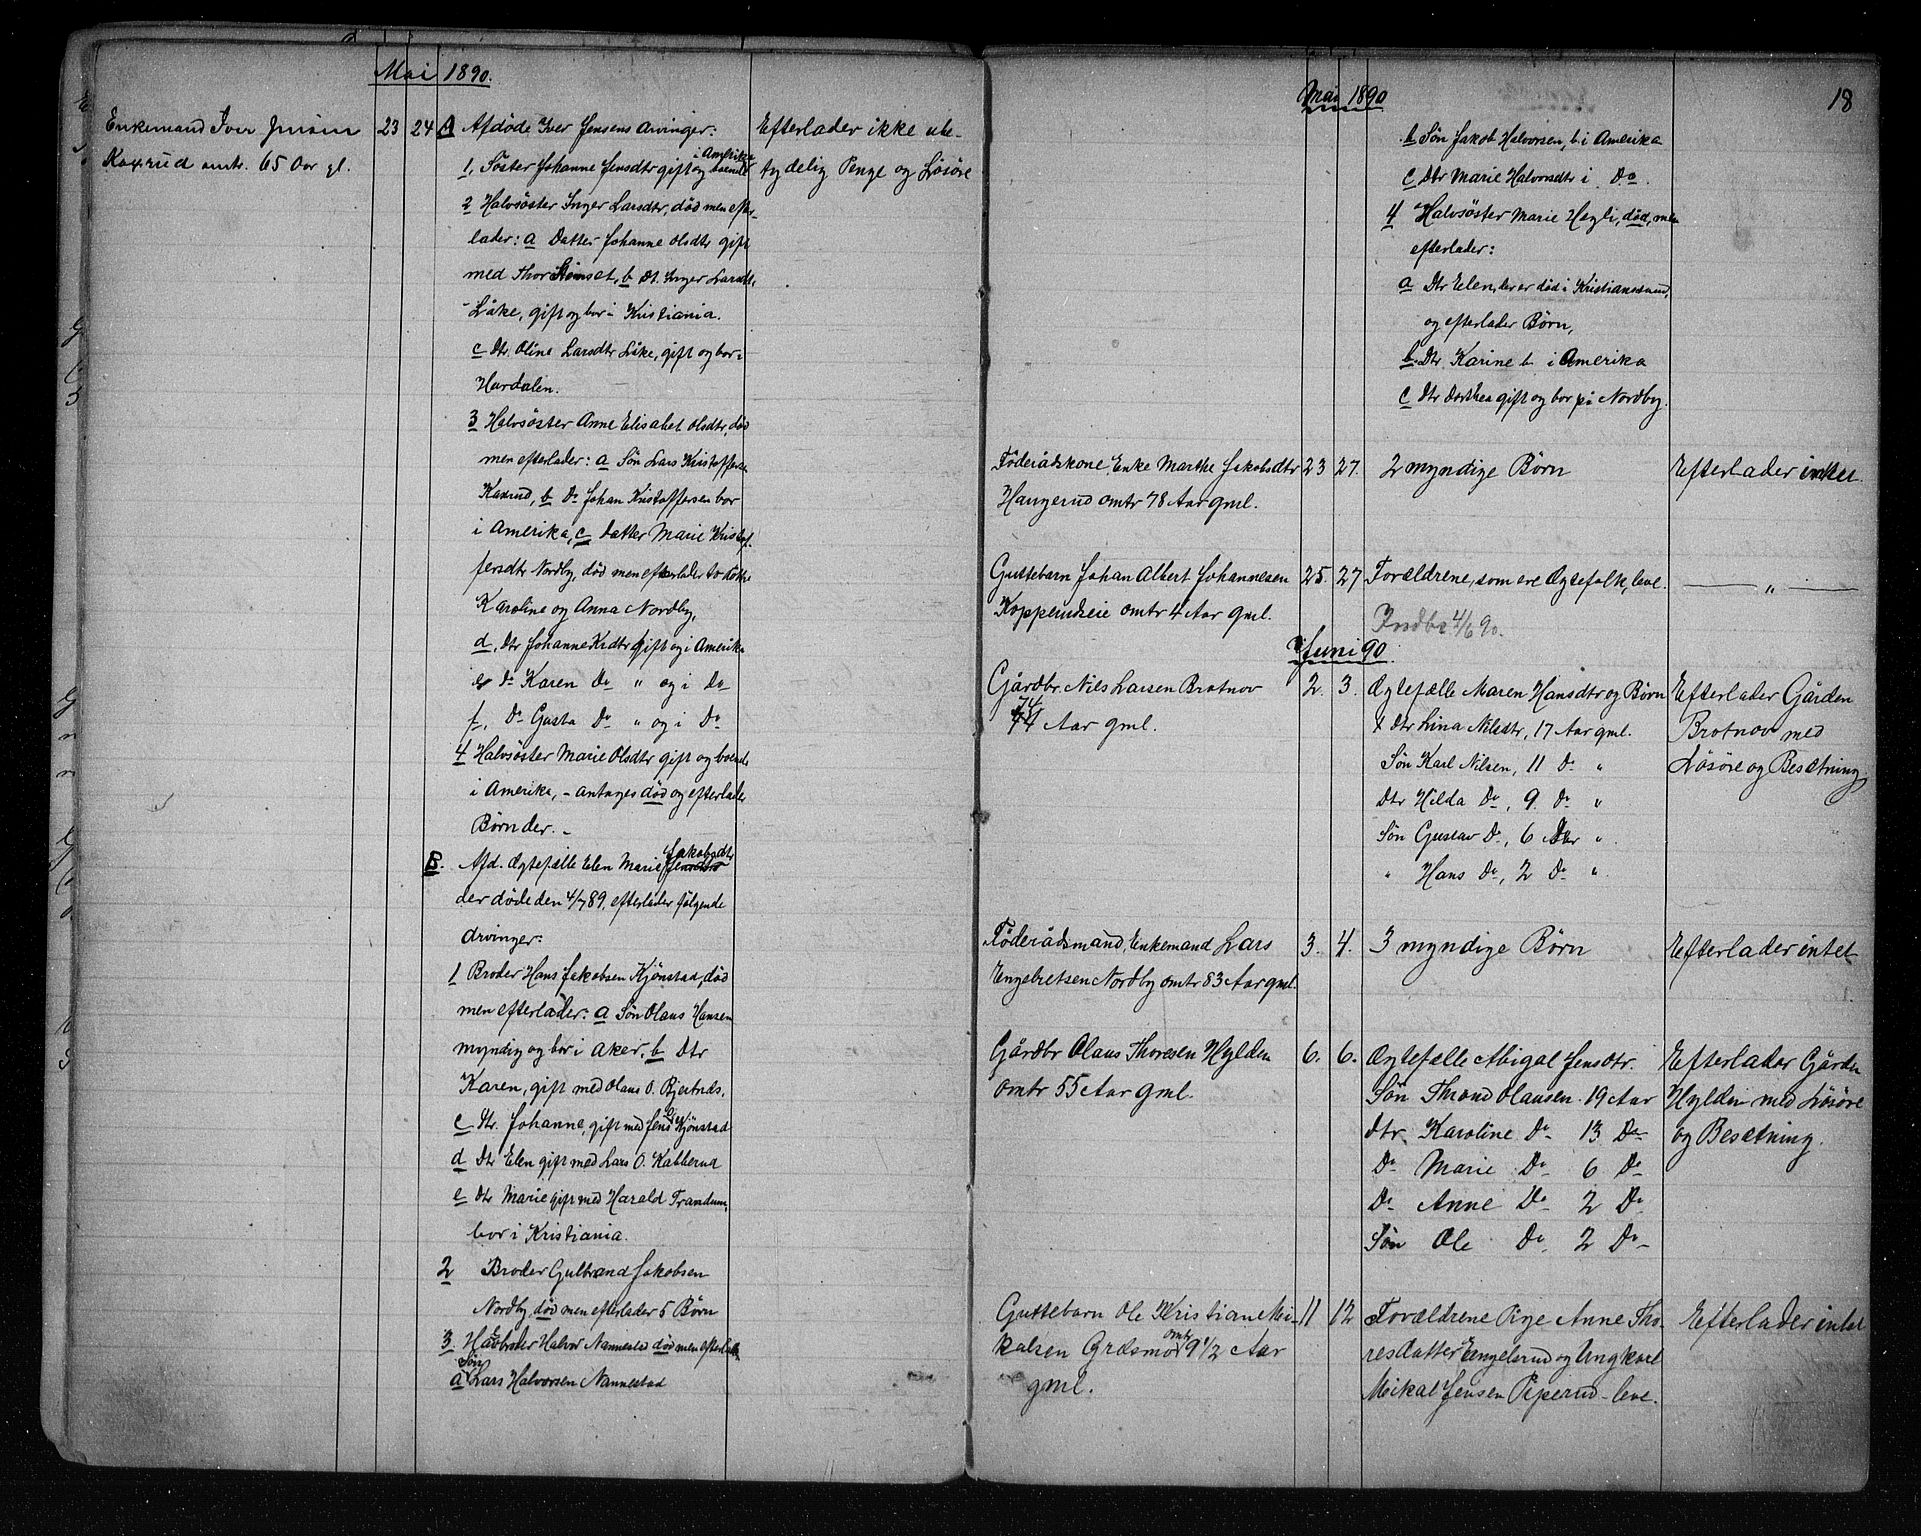 Mai 1890.
Enkemand Iver Jensen
Kaxrud omtr. 65 Aar gl.
23
24
A Afdøde Iver Jensens Arvinger:
1, Søster Johanne Jensdtr gift og boende
i Amerika
2 Halvsøster Inger Larsdtr, død men efter-
lader: a Datter Johanne Olsdtr gift
med Thor, b Dt. Inger Larsdt,
Låke, gift og bor i Kristiania.
c Dtr. Oline Larsdtr Låke, gift og bor i
Hurdalen.
3 Halvsøster Anne Elisabet Olsdtr, død
men efterlader: a Søn Lars Kristoffersen
Kaxrud, b Do Johan Kristoffersen bor
i Amerika, c Datter Marie Kristof-
fersdtr Nordby, død men efterlader to Døttre
Karoline og Anna Nordby,
d, Dtr Johanne Krdtr gift og i Amerika
e Do Karen Do " og i Do
f, Do Gusta Do " og i Do
4 Halvsøster Marie Olsdtr gift og boende
i Amerika, - antages død og efterlader
Børn der. -
B. Afd. Ægtefælle Elen Marie Jakobsdtr
der døde den 4/7 89, efterlader følgende
Arvinger:
1 Broder Hans Jakobsen Kjønstad, død
men efterlader: a Søn Olaus Hansen
myndig og bor i Aker, b Dtr
Karen, gift med Olaus O. Bjertnes,
c Dtr. Johanne, gift med Jens Kjønstad
d Dtr Elen gift med Lars O. Kabberud
e Dtr Marie gift med Harald Trandum,
bor i Kristiania.
2 Broder Gulbrand Jakobsen
Nordby, død men efterlader 5 Børn
3. Halvbroder Halvor Nannestad død men efterlader
Søn
a Lars Halvorsen Nannestad
Efterlader ikke ube-
tydelig Penge og Løsøre
Mai 1890
18
b Søn Jakob Halvorsen, b. i Amerika
c Dtr Marie Halvorsdtr i Do.
4 Halvsøster Marie Hegli, død, men
efterlader:
a Dtr Elen, der er død i Kristianssund,
og efterlader Børn,
b. Dtr Karine b. i Amerika
c Dtr Dorthea gift og bor på Nordby.
Føderådskone, Enke Marthe Jakobsdtr 23 27. 2 myndige Børn Efterlader intet
Haugerud omtr 78 Aar gml.
Guttebarn Johan Albert Johannesen 25. 27 Forældrene, som ere Ægtefolk, leve. — " —
Kopperudseie omtr 4 Aar gml.
Indb. 4/6 90.
Juni 90.
Gårdbr. Nils Larsen Brotnov 2. 3. Ægtefælle Maren Hansdtr og Børn Efterlader Gården
74
44 Aar gml. Dtr Lina Nilsdtr, 17 Aar gml. Brotnov med
Søn Karl Nilsen, 11 Do " Løsøre og Besætning
Dtr Hilda Do, 9 Do "
Søn Gustav Do, 6 Do "
" Hans Do, 2 Do "
Føderådsmand, Enkemand Lars 3. 4. 3 myndige Børn Efterlader intet
Engebretsen Nordby omtr 83 Aar gml.
Gårdbr Olaus Thoresen Hylden 6. 6. Ægtefælle Abigal Jensdtr. Efterlader Gården
omtr 55 Aar gml. Søn Thrond Olausen 19 Aar Hylden med Løsøre
Dtr. Karoline Do 13 Do og Besætning.
Do Marie Do 6 Do
Do Anne Do 2 Do
Søn Ole Do 2 Do
Guttebarn Ole Kristian Mi- 11 12 Forældrene Pige Anne Tho- Efterlader intet
kalsen Græsmo omtr 9 1/2 Aar resdatter Engelsrud og Ungkarl
gml. Mikal Jensen Piperud - leve.